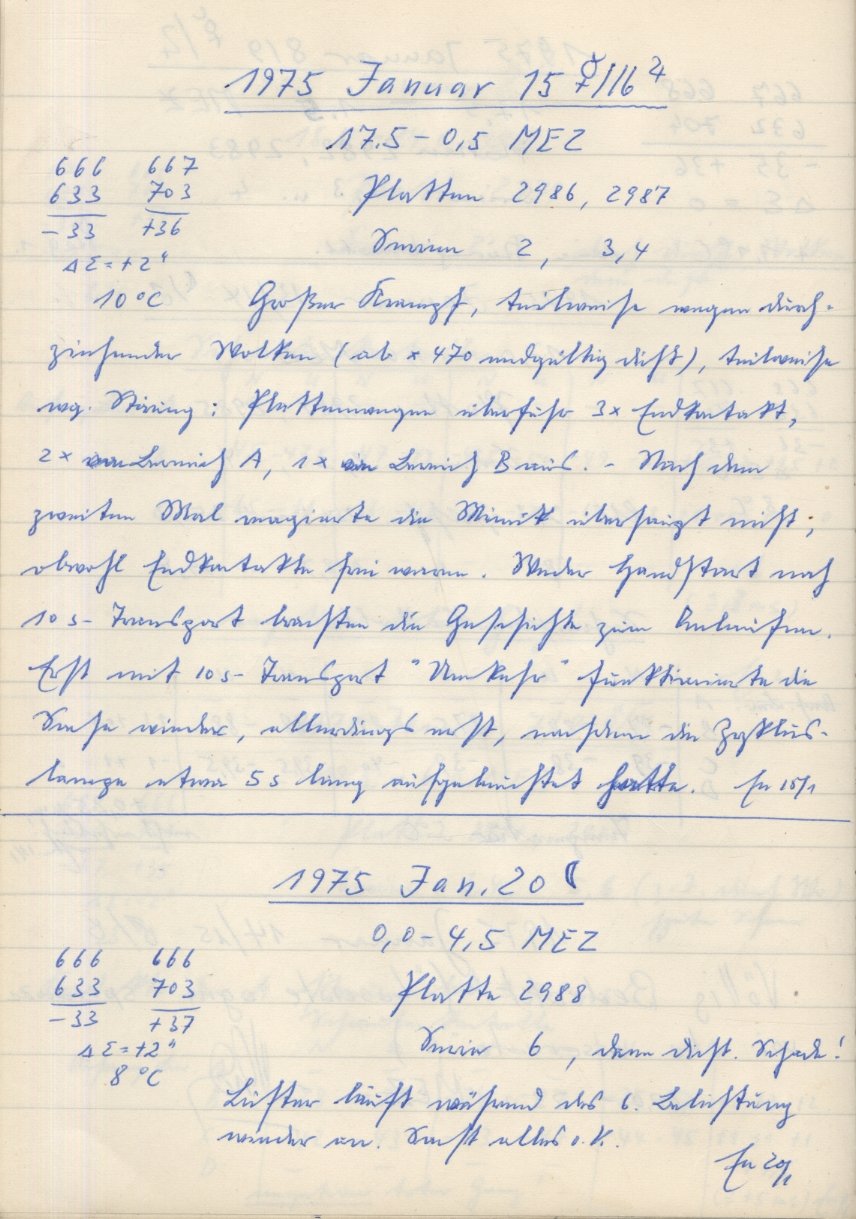 1975 Januar 15 ☿/16 ♃
17.5 – 0,5 MEZ
666 667
633 703
-33 +36
ΔΣ = +2"
10 °C
Platten 2986, 2987
Serien 2, 3,4
Großer Krampf, teilweise wegen durch-
ziehender Wolken (ab × 470 endgültig dicht), teilweise
wg. Störung: Plattenwagen überfuhr 3× Endkontakt,
2× Bereich A, 1× Bereich B aus. – Nach dem
zweiten Mal reagierte die Mimik überhaupt nicht,
obwohl Endkontakte frei waren. Weder Handstart noch
10 s- Transport brachten die Geschichte zum Anlaufen.
Erst mit 10 s- Transport "Umkehr" funktionierte die
Sache wieder, allerdings erst, nachdem die Zyklus-
lampe etwa 5 s lang aufgeleuchtet hatte. 15/1
1975 Jan. 20 ☾
0,0 – 4,5 MEZ
666 666
633 703
-33 +37
ΔΣ = +2"
8 °C
Platte 2988
Serie 6, dann dicht. Schade!
Lüfter läuft während des 6. Belichtung
wieder an. Sonst alles o.K.
20/1